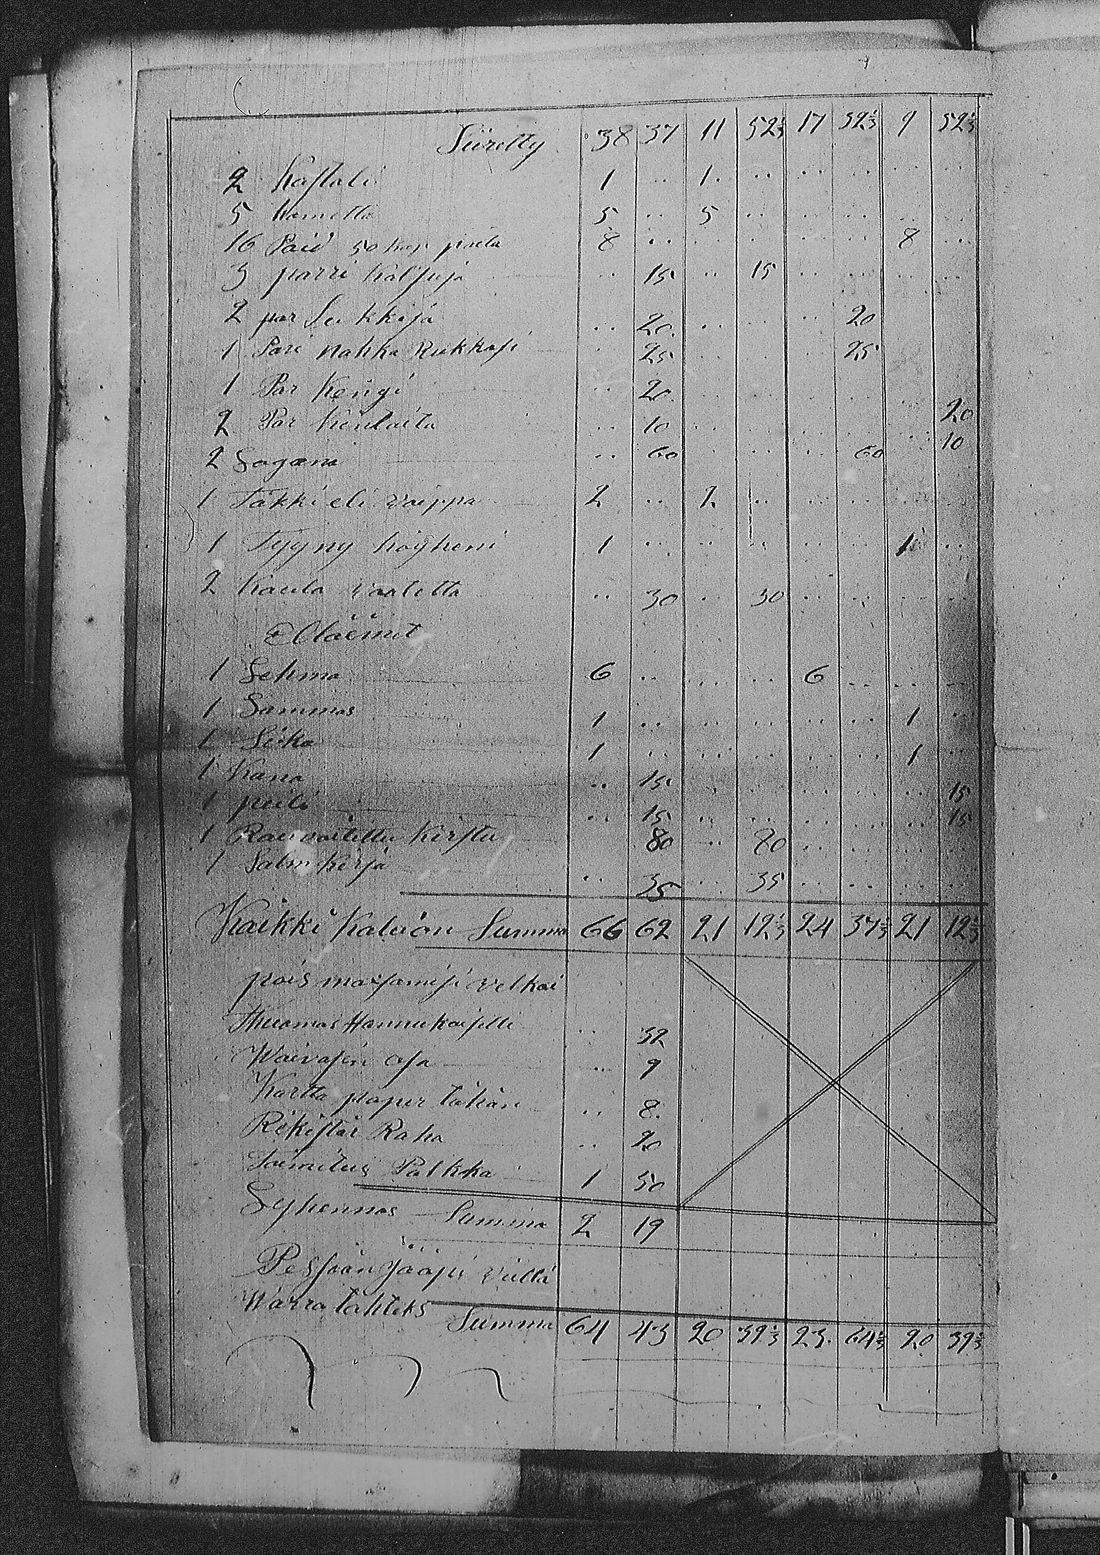 Siiretty 38 37 11 52⅓ 17 52⅓ 9 52⅓
2 Kastali 1 .. 1 .. .. .. .. ..
5 hametta 5 .. 5 .. .. .. .. ..
16 Paid 50 kop 8 .. .. .. .. .. 8 ..
3 parri .. 15 .. 15 .. .. .. ..
2 par Sukkija .. 20 .. .. .. 20
1 Pari nahka Rukkasi .. 25 .. .. .. 25
1 Par Kengi .. 20 .. .. .. .. .. 20
2 Par .. 10 .. .. .. .. .. 10
2 .. 60 .. .. .. 60
1 Täkki eli vaippa 2 .. 2 .. .. .. .. ..
1 Tyyny 1 .. .. .. .. .. 1 ..
2 Kaula vaatetta .. 30 .. 30 .. .. .. ..
Eläimit
1 Lehmä 6 .. .. .. 6 .. .. ..
1 Lammas 1 .. .. .. .. .. 1 ..
1 Sika 1 .. .. .. .. .. 1 ..
1 Kana .. 15 .. .. .. .. .. 15
1 peili .. 15 .. .. .. .. .. 15
1 Rauvoitettu Kirstu 80 .. 80 .. .. .. ..
1 Salmkirja .. 35 .. 35 .. .. .. ..
Kaikki Kaluïn Summa 66 62 21 12⅓ 24 37⅓ 21 12⅓
pois maxamisi velkai
Thuomas Hannukaiselle .. 32
Waivasin osa .. 9
Kartta paper tähän .. 8
Rekistär Raha .. 20
Toimitus Palkka 1 50
Syhennos Summa 2 19
Pesään Jääpi vielä
Warra tähteks
Summa 64 43 20 39⅓ 23 64⅓ 20 39⅓